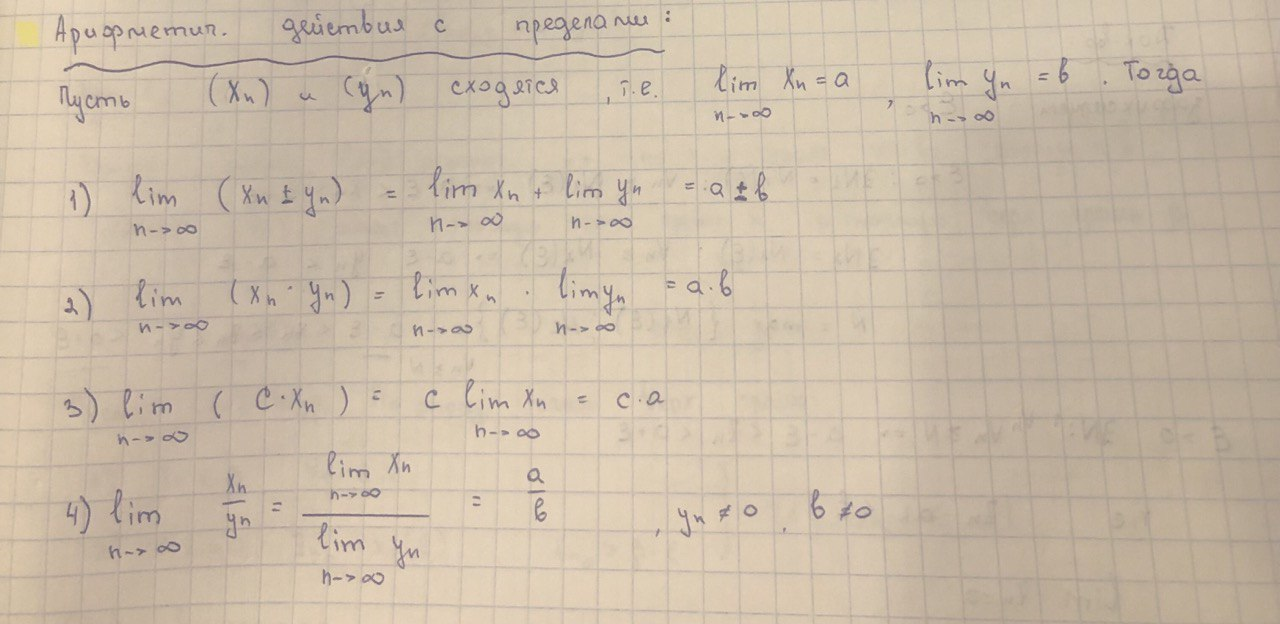 Арифметич. действия с пределами:
Пусть (xₙ) и (yₙ) сходятся, т.е. lim xₙ = a, lim yₙ = b. Тогда
n→∞ n→∞
1) lim (xₙ ± yₙ) = lim xₙ + lim yₙ = a ± b
n→∞ n→∞ n→∞
2) lim (xₙ · yₙ) = lim xₙ · lim yₙ = a·b
n→∞ n→∞ n→∞
3) lim (C·xₙ) = c lim xₙ = c·a
n→∞ n→∞
4) lim xₙ/yₙ = lim xₙ / lim yₙ = a/b, yₙ ≠ 0, b ≠ 0
n→∞ n→∞ n→∞